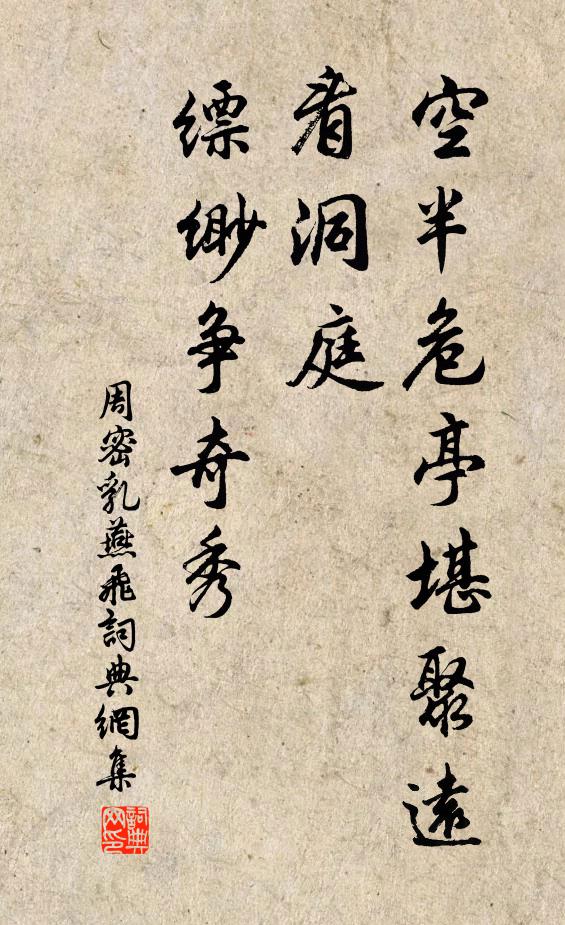 空半危亭堪聚遠
看洞庭
缥缈争奇秀
周密乳燕飛詞典網集
詞典
网印